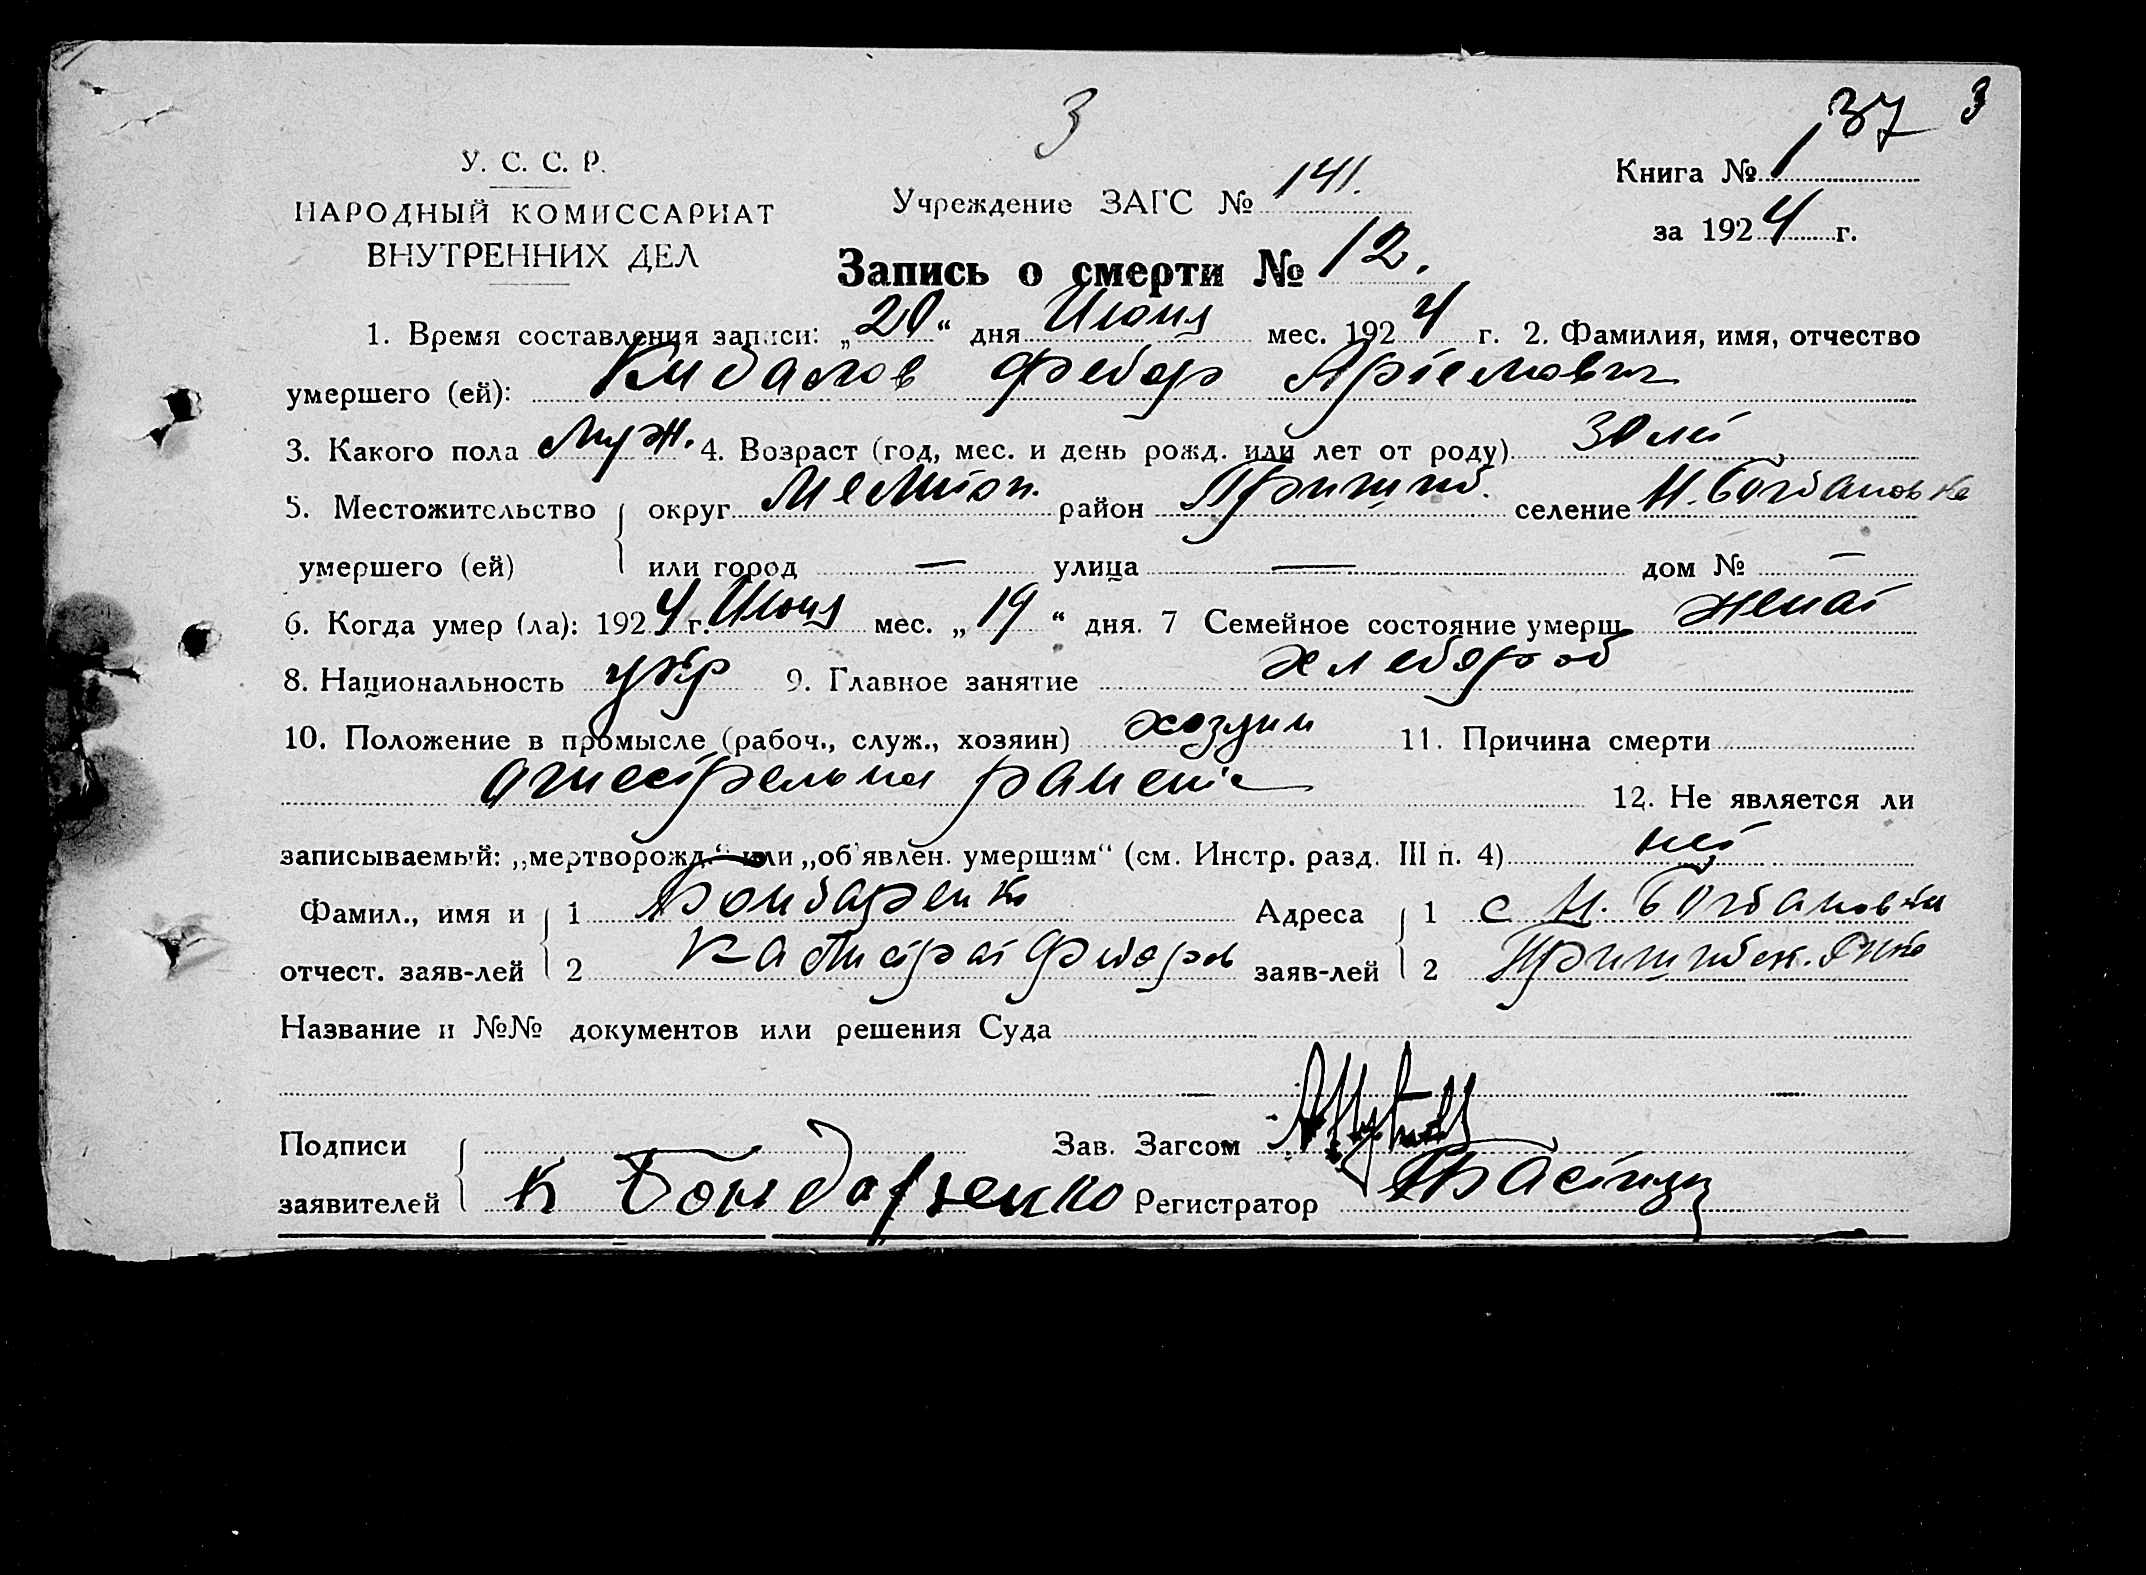 3
37 3
У. С. С. Р.
НАРОДНЫЙ КОМИССАРИАТ
ВНУТРЕННИХ ДЕЛ
Учреждение ЗАГС № 141.
Книга № 1
за 1924 г.
Запись о смерти № 12.
1. Время составления записи: „20“ дня Июня мес. 1924 г. 2. Фамилия, имя, отчество
умершего (ей): Кидалов Федор Артемович
3. Какого пола муж. 4. Возраст (год, мес. и день рожд. или лет от роду) 30 лет
5. Местожительство округ Мелитоп. район Пришиб. селение Н. Богдановка
умершего (ей) или город — улица — дом № —
6. Когда умер (ла): 1924 г. Июня мес. „19“ дня. 7 Семейное состояние умерш. женат
8. Национальность укр 9. Главное занятие хлебороб
10. Положение в промысле (рабоч., служ., хозяин) хозяин 11. Причина смерти
огнестрельна ранение 12. Не является ли
записываемый: „мертворожд.“ или „об'явлен. умершим“ (см. Инстр. разд. III п. 4) нет
Фамил., имя и 1 Бондаренко Адреса 1 с Н. Богдановки
отчест. заяв-лей 2 Федоров заяв-лей 2 Пришибск.
Название и №№ документов или решения Суда
Подписи Зав. Загсом
заявителей К Бондаренко Регистратор